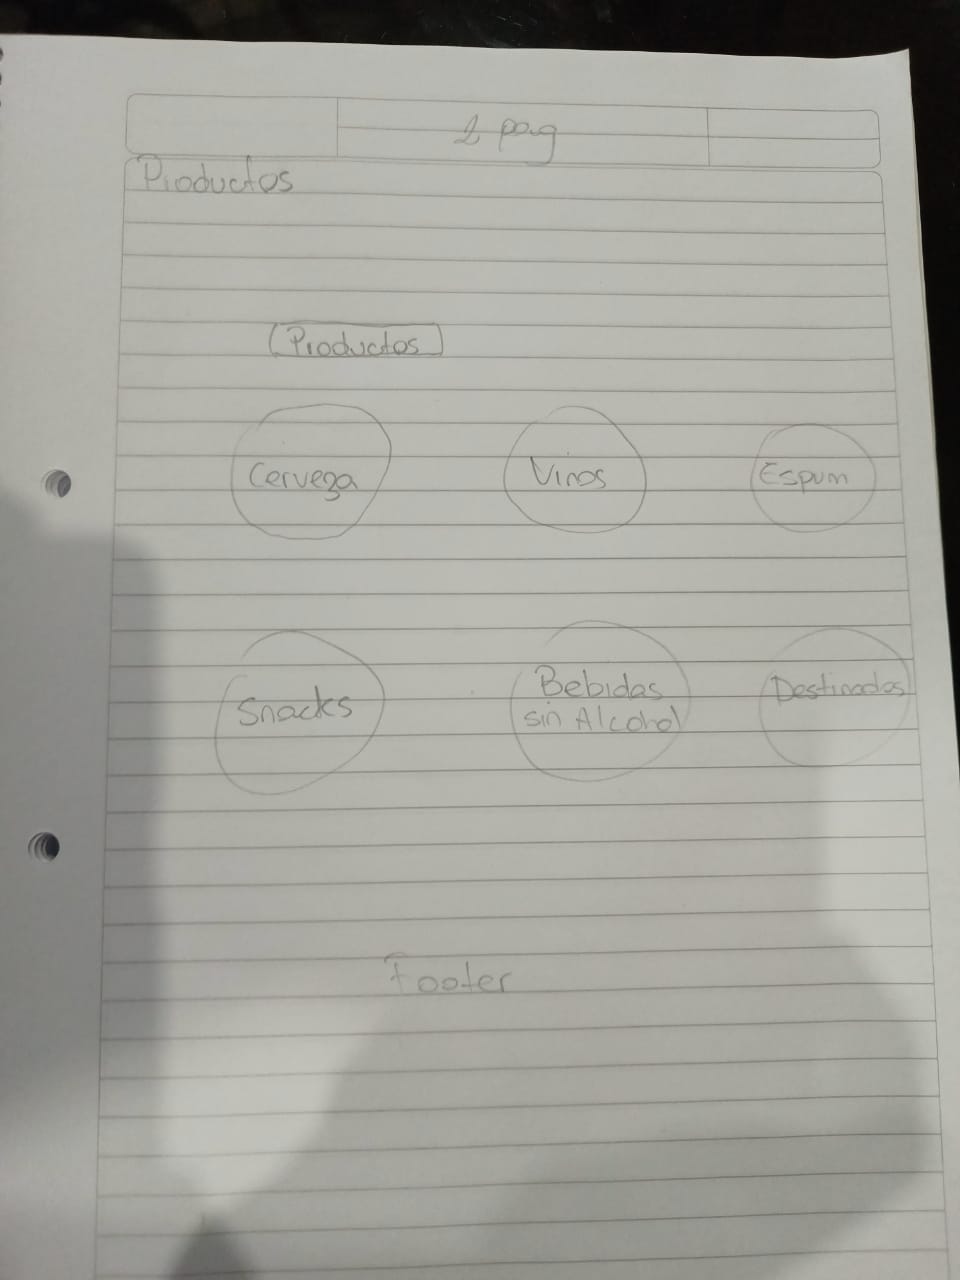 2 pag
Productos
Productos
Cerveza
Vinos
Espum
Snacks
Bebidas
sin Alcohol
Destinados
Footer